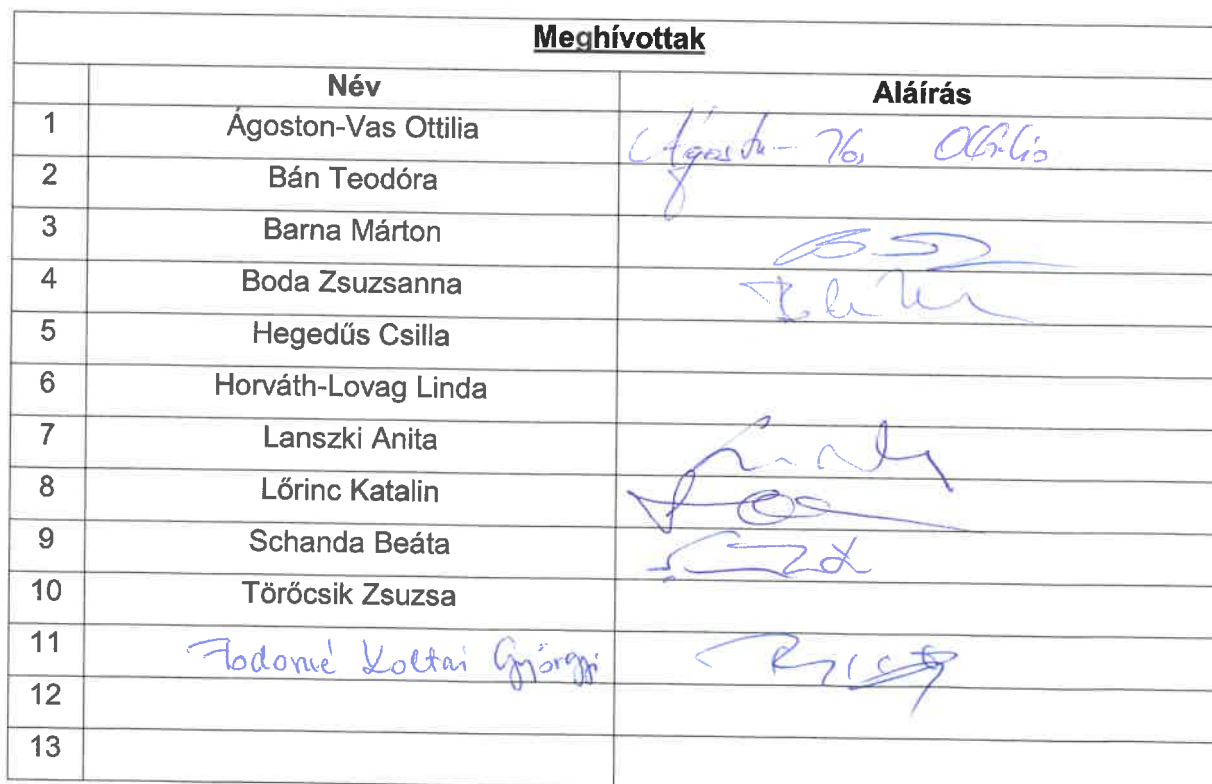 Meghívottak
Név Aláírás
1 Ágoston-Vas Ottilia Ágoston-Vas Ottilia
2 Bán Teodóra
3 Barna Márton
4 Boda Zsuzsanna
5 Hegedűs Csilla
6 Horváth-Lovag Linda
7 Lanszki Anita
8 Lőrinc Katalin
9 Schanda Beáta
10 Törőcsik Zsuzsa
11 Koltai Györgyi
12
13